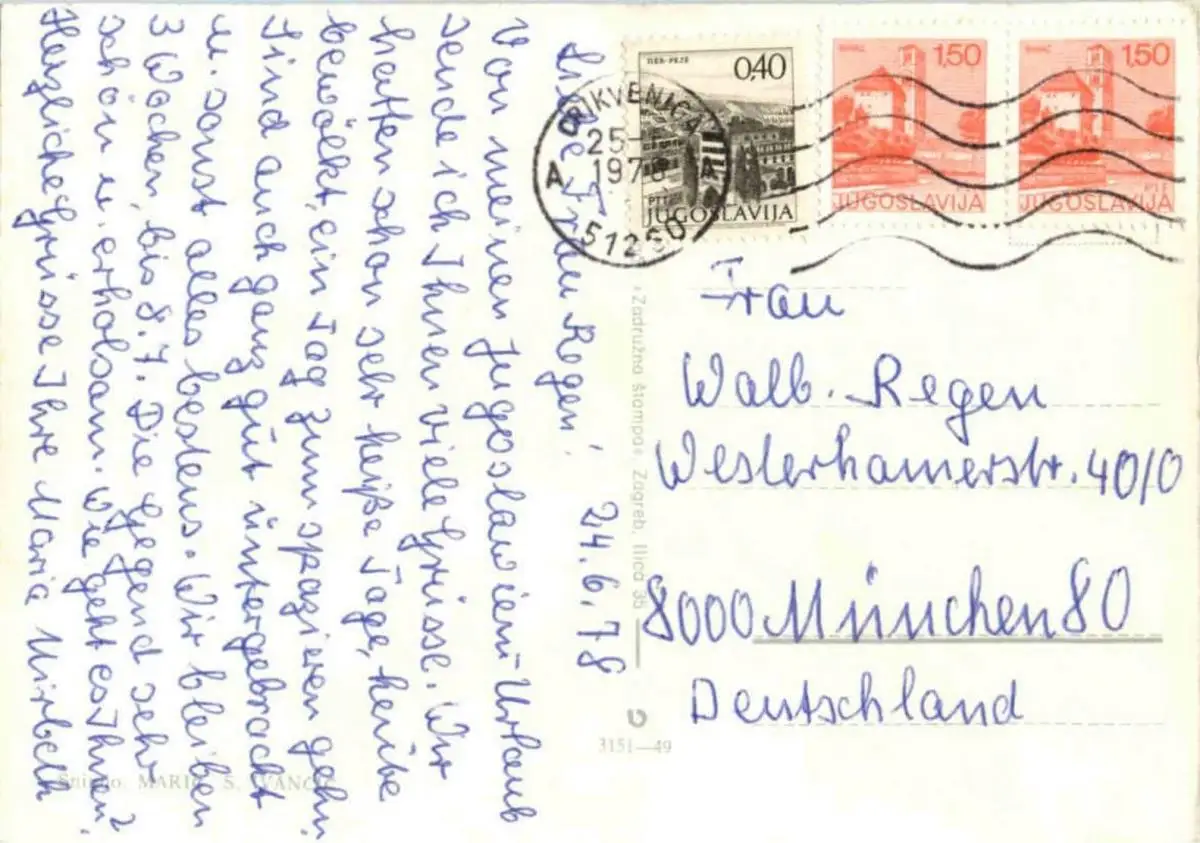 Liebe Frau Regen!
24.6.78
Von meinen Jugoslawien-Urlaub
sende ich Ihnen viele Grüsse. Wir
hatten schon sehr heiße Tage, heute
bewölkt, ein Tag zum spazieren gehn.
Sind auch ganz gut untergebracht
u. sonst alles bestens. Wir bleiben
3 Wochen, bis 8.7. Die Gegend sehr
schön u. erholsam. Wie geht es Ihnen?
Herzliche Grüsse Ihre Maria
TITOV VELES
0,40
PTT
JUGOSLAVIJA
BIHAĆ
1,50
PTT
JUGOSLAVIJA
BIHAĆ
1,50
PTT
JUGOSLAVIJA
CRIKVENICA
25-
1978
A A
51260
Frau
Walb. Regen
Westerhamerstr. 40/0
8000 München 80
Deutschland
»Zadružna štampa«, Zagreb, Ilica 35
3151—49
Snimio: MARIO S. IVANČIĆ